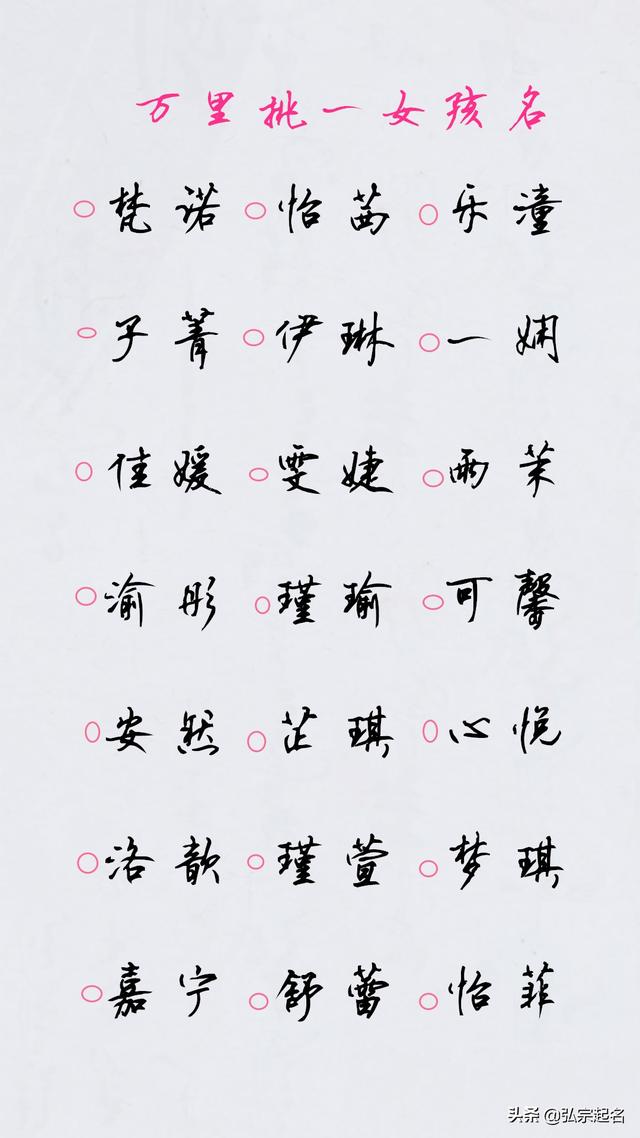 万里挑一女孩名
○梵诺 ○怡茜 ○乐潼
○子菁 ○伊琳 ○一娴
○佳媛 ○雯婕 ○雨茉
○渝彤 ○瑾瑜 ○可馨
○安然 ○芷琪 ○心悦
○洛歆 ○瑾萱 ○梦琪
○嘉宁 ○舒蕾 ○怡菲
头条 @弘宗起名